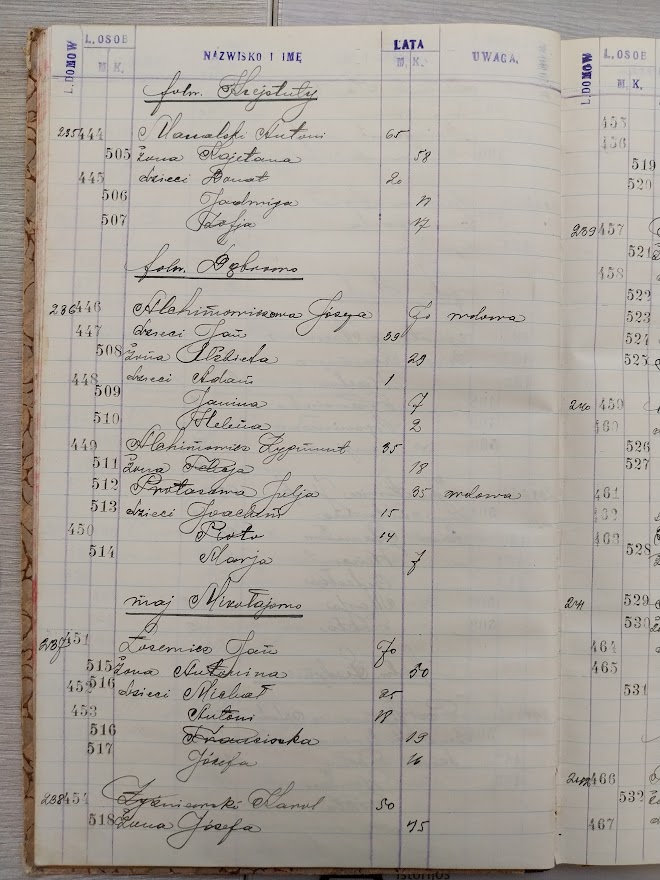 L. DOMÓW L. OSOB NAZWISKO I IMĘ LATA UWAGA.
M. K. M. K.
folw. Krejstuły
235 444 Nawalski Antoni 65
505 żona Kajetana 58
445 dzieci Donat 20
506 Jadwiga 11
507 Zofja 17
folw. Dąbrowo
236 446 Alchimowiczowa Józefa 70 wdowa
447 dzieci Jan 39
508 żona Elżbieta 29
448 dzieci Adam 1
509 Janina 7
510 Helena 2
449 Alchimowicz Zygmunt 35
511 żona 18
512 Protasowa Julja 35 wdowa
513 dzieci Joachim 15
450 Piotr 14
514 Marja 7
maj Mikołajowo
237 451 Jan 70
515 żona Antonina 50
452 516 dzieci Michał 25
453 Antoni 18
516 Franciszka 19
517 Józefa 16
238 454 Karol 50
518 żona Józefa 45
L. DOMÓW L. OSOB
M. K.
455
456
519
520
239 457
521
458
522
523
524
525
240 459
460
526
527
461
462
463
528
241 529
530
464
465
531
242 466
532
467